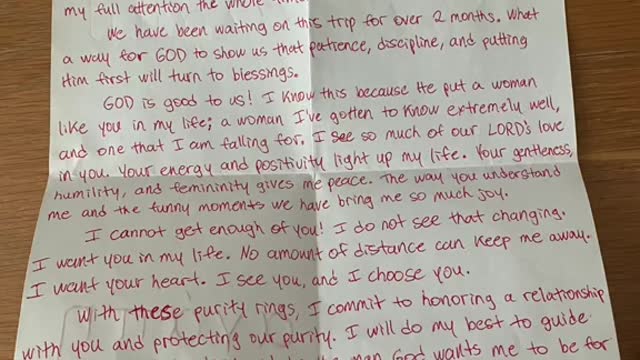 my full attention the whole time.
We have been waiting on this trip for over 2 months. What
a way for GOD to show us that patience, discipline, and putting
Him first will turn to blessings.
GOD is good to us! I know this because He put a woman
like you in my life; a woman I've gotten to know extremely well,
and one that I am falling for. I see so much of our LORD's love
in you. Your energy and positivity light up my life. Your gentleness,
humility, and femininity gives me peace. The way you understand
me and the funny moments we have bring me so much joy.
I cannot get enough of you! I do not see that changing.
I want you in my life. No amount of distance can keep me away.
I want your heart. I see you, and I choose you.
With these purity rings, I commit to honoring a relationship
with you and protecting our purity. I will do my best to guide
man God wants me to be for